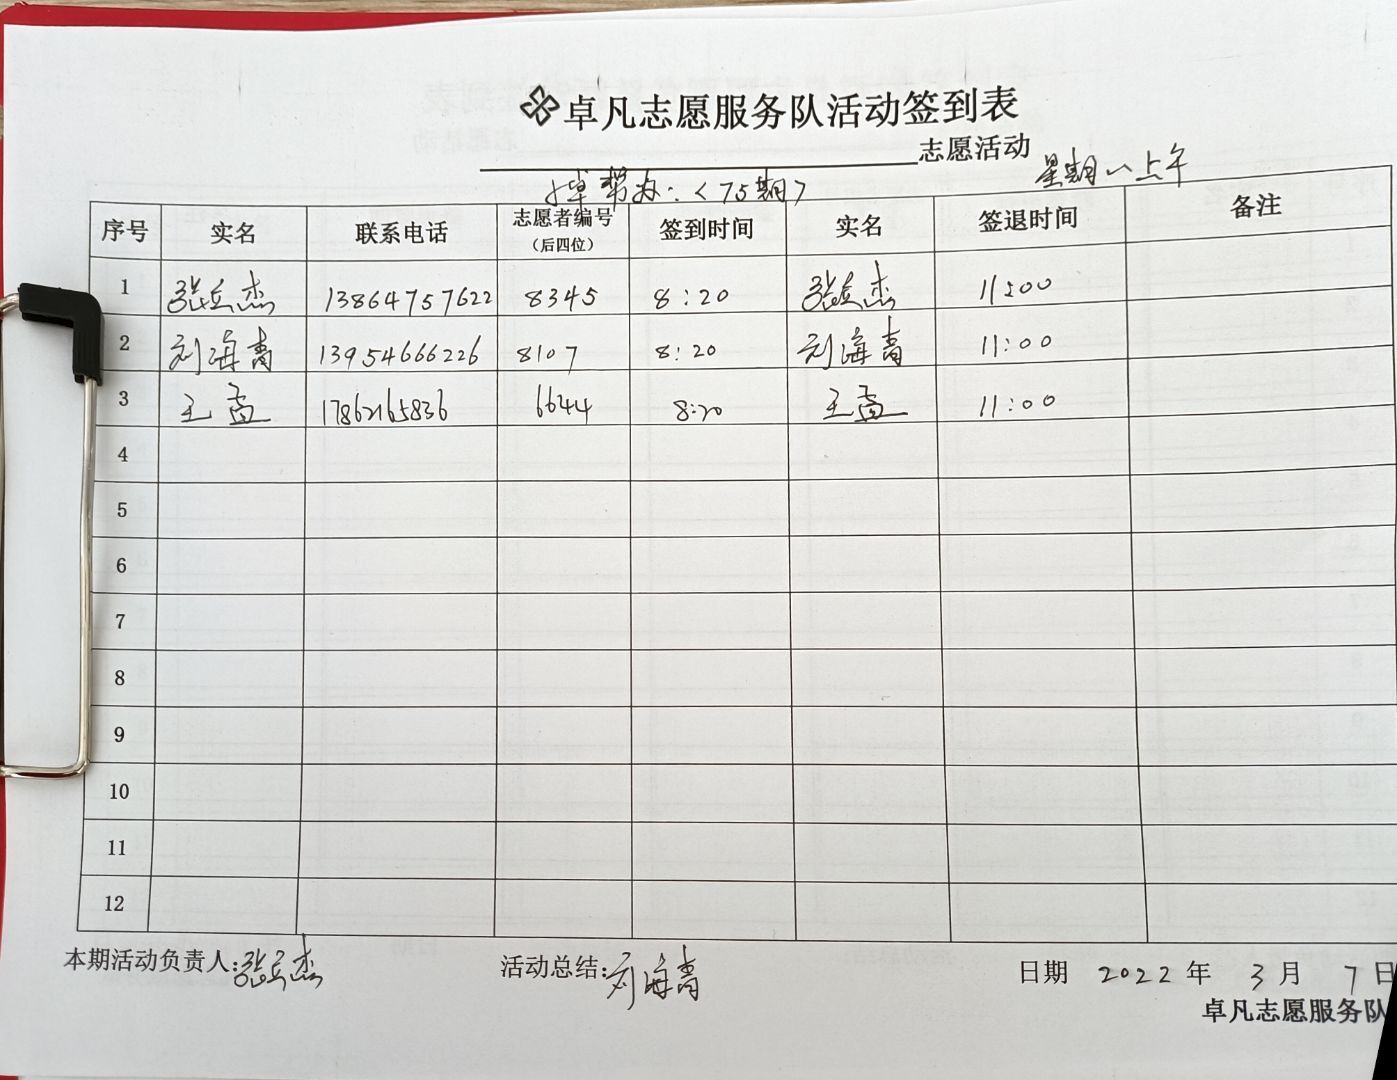 卓凡志愿服务队活动签到表
志愿活动
帮办:〈75期〉 星期一上午
序号 实名 联系电话 志愿者编号(后四位) 签到时间 实名 签退时间 备注
1 张兵杰 13864757622 8345 8:20 张兵杰 11:00
2 刘海青 13954666226 8107 8:20 刘海青 11:00
3 王孟 17862165836 6644 8:20 王孟 11:00
4
5
6
7
8
9
10
11
12
本期活动负责人:张兵杰 活动总结:刘海青 日期 2022 年 3 月 7 日
卓凡志愿服务队